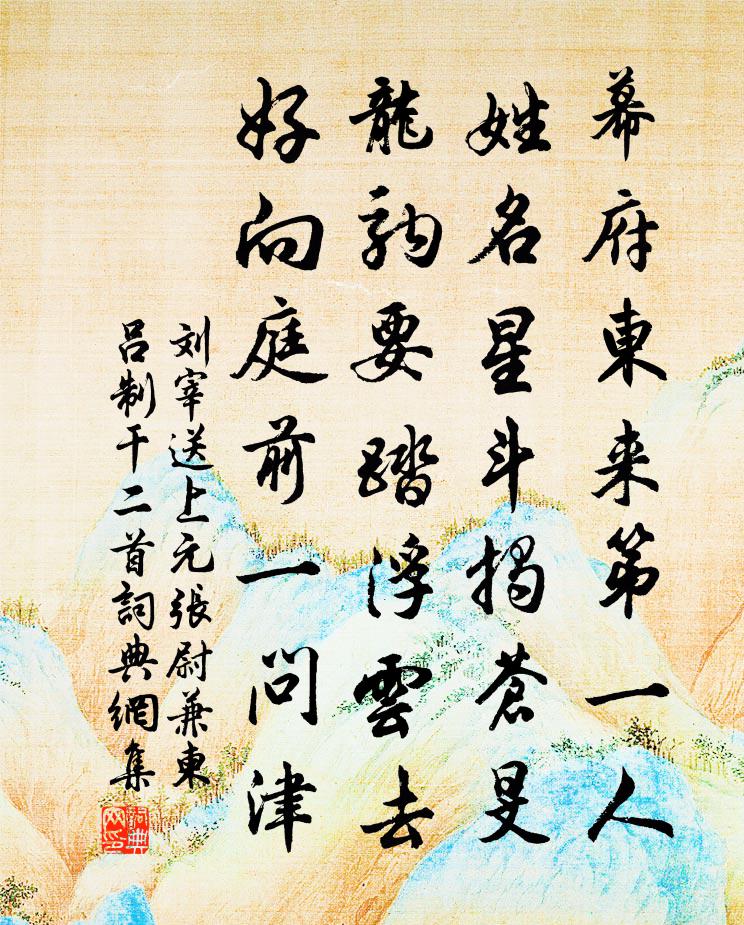 幕府東来第一人
姓名星斗揭蒼旻
龍駒要踏浮雲去
好向庭前一問津
刘宰送上元張尉兼東
吕制干二首詞典網集
詞典
网印